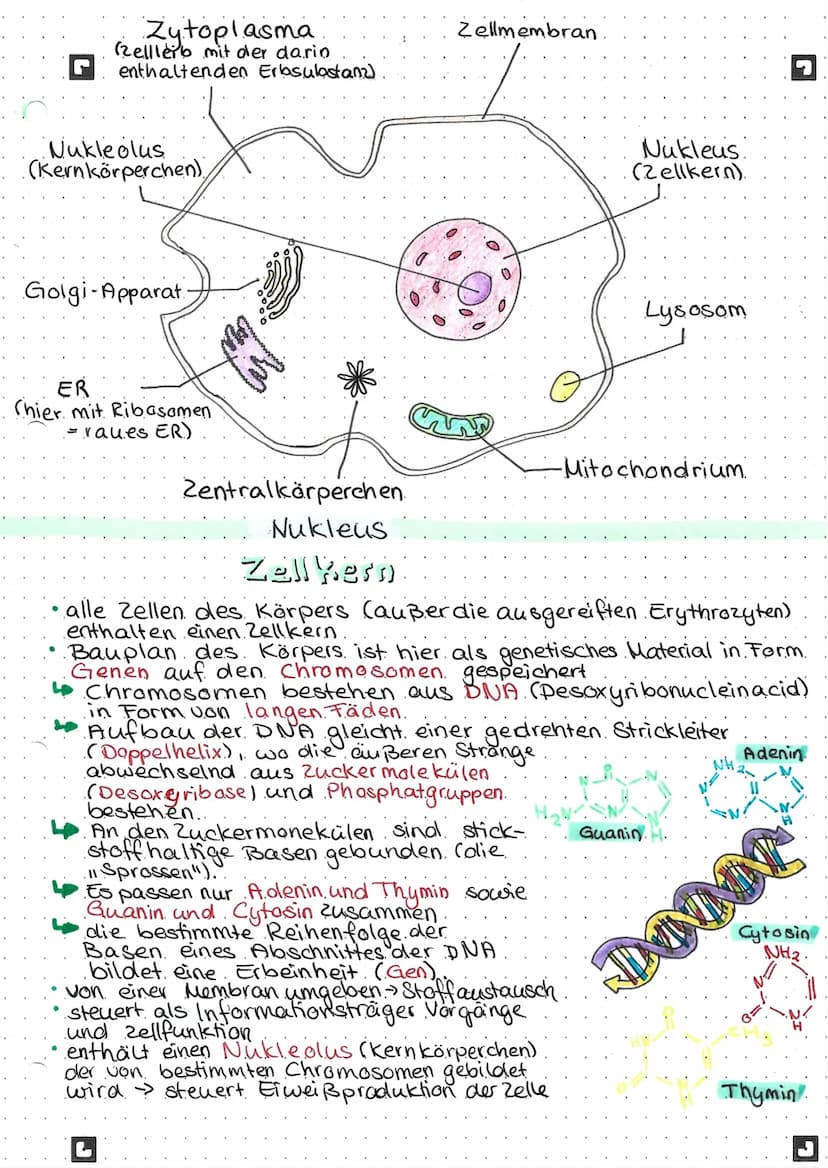 Zytoplasma
(Zellleib mit der darin
enthaltenden Erbsubstanz)
Zellmembran
Nukleolus
(Kernkörperchen)
Nukleus
(Zellkern)
Golgi-Apparat
Lysosom
ER
(hier mit Ribosomen
= raues ER)
Mitochondrium
Zentralkörperchen
Nukleus
Zellkern
• alle Zellen des Körpers (außer die ausgereiften Erythrozyten)
enthalten einen Zellkern
• Bauplan des Körpers ist hier als genetisches Material in Form
Genen auf den Chromosomen gespeichert
↳ Chromosomen bestehen aus DNA (Desoxyribonucleinacid)
in Form von langen Fäden
↳ Aufbau der DNA gleicht einer gedrehten Strickleiter
(Doppelhelix), wo die äußeren Stränge
abwechselnd aus Zuckermolekülen
(Desoxyribose) und Phosphatgruppen
bestehen.
↳ An den Zuckermonekülen sind stick-
stoffhaltige Basen gebunden (die
„Sprossen").
↳ Es passen nur Adenin und Thymin sowie
Guanin und Cytosin zusammen
↳ die bestimmte Reihenfolge der
Basen eines Abschnittes der DNA
bildet eine Erbeinheit (Gen)
• von einer Membran umgeben → Stoffaustausch
• steuert als Informationsträger Vorgänge
und Zellfunktion
• enthält einen Nukleolus (Kernkörperchen)
der von bestimmten Chromosomen gebildet
wird → steuert Eiweißproduktion der Zelle
Adenin
NH2
N
N
N
N
H
N
N
N
N
H
H2N
Guanin
Cytosin
NH2
N
O
N
H
CH3
Thymin